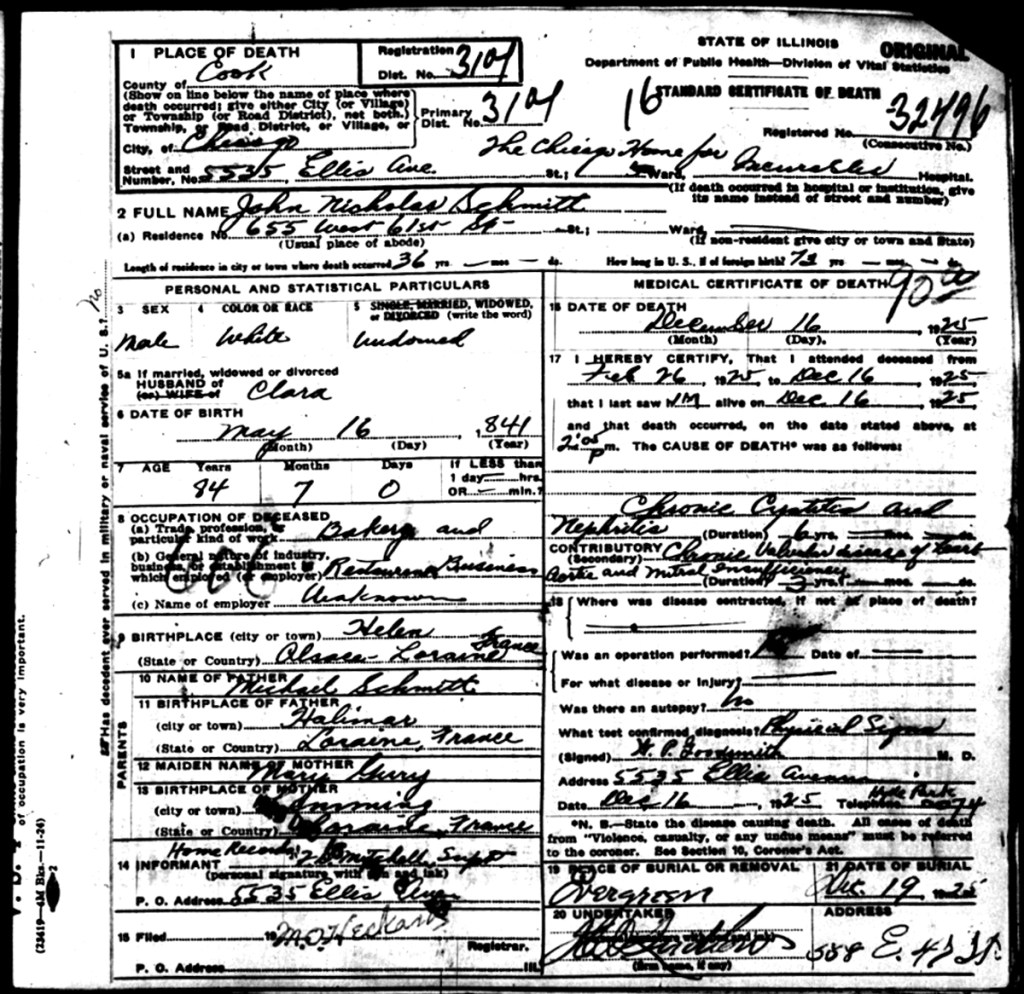 STATE OF ILLINOIS
ORIGINAL
Department of Public Health—Division of Vital Statistics
STANDARD CERTIFICATE OF DEATH
16
32496
Registered No.
(Consecutive No.)
1 PLACE OF DEATH
Registration Dist. No. 3104
County of Cook
(Show on line below the name of place where
death occurred; give either City (or Village)
or Township (or Road District), not both.)
Primary Dist. No. 3104
Township, or Road District, or Village, or
City, of Chicago
The Chicago Home for Incurables
Street and Number, No. 5535 Ellis Ave. St.; Ward, Hospital.
(If death occurred in hospital or institution, give
its name instead of street and number)
2 FULL NAME John Nicholas Schmitt
(a) Residence No. 655 West 61st St. St.; Ward,
(Usual place of abode) (If non-resident give city or town and State)
Length of residence in city or town where death occurred 36 yrs. — mos. — ds. How long in U. S., if of foreign birth? 73 yrs. — mos. — ds.
PERSONAL AND STATISTICAL PARTICULARS
3 SEX 4 COLOR OR RACE 5 SINGLE, MARRIED, WIDOWED,
or DIVORCED (write the word)
Male White Widowed
5a If married, widowed or divorced
HUSBAND of Clara
(or) WIFE of
6 DATE OF BIRTH
May 16, 1841
(Month) (Day) (Year)
7 AGE Years Months Days If LESS than
1 day — hrs.
84 7 0 OR — min.?
8 OCCUPATION OF DECEASED
(a) Trade, profession, or
particular kind of work Bakery and
(b) General nature of industry,
business, or establishment in
which employed (or employer) Restaurant Business
(c) Name of employer Unknown
9 BIRTHPLACE (city or town) Helen
(State or Country) Alsace-Loraine France
PARENTS
10 NAME OF FATHER Michael Schmitt
11 BIRTHPLACE OF FATHER
(city or town) Halimar
(State or Country) Loraine, France
12 MAIDEN NAME OF MOTHER Mary
13 BIRTHPLACE OF MOTHER
(city or town)
(State or Country) Loraine, France
Home Records
14 INFORMANT Mitchell, Supt
(personal signature with pen and ink)
P. O. Address 5535 Ellis Ave
15 Filed 19
Registrar.
P. O. Address Ill.
MEDICAL CERTIFICATE OF DEATH
90
16 DATE OF DEATH
December 16, 1925
(Month) (Day). (Year)
17 I HEREBY CERTIFY, That I attended deceased from
Feb 26, 1925, to Dec 16, 1925,
that I last saw him alive on Dec. 16, 1925
and that death occurred, on the date stated above, at
2:05 p m. The CAUSE OF DEATH* was as follows:
Chronic Cystitis and
Nephritis (Duration) 6 yrs. mos. ds.
CONTRIBUTORY (Secondary) Chronic Valvular disease of heart
Aortic and Mitral Insufficiency (Duration) 3 yrs. mos. ds.
18 Where was disease contracted, if not at place of death?
Was an operation performed? Date of
For what disease or injury?
Was there an autopsy? No
What test confirmed diagnosis? Physical Signs
(Signed) W. P. Goodsmith M. D.
Address 5535 Ellis Avenue
Date Dec 16, 1925 Telephone Hyde Park
*N. B.—State the disease causing death. All cases of death
from "Violence, casualty, or any undue means" must be referred
to the coroner. See Section 10, Coroner's Act.
19 PLACE OF BURIAL OR REMOVAL
Evergreen
21 DATE OF BURIAL
Dec. 19 1925
20 UNDERTAKER
(firm name, if any)
ADDRESS
558 E. 47 St.
22 Has decedent ever served in military or naval service of U. S.? no
of occupation is very important.
(23619—4M Bks.—11-26) 2